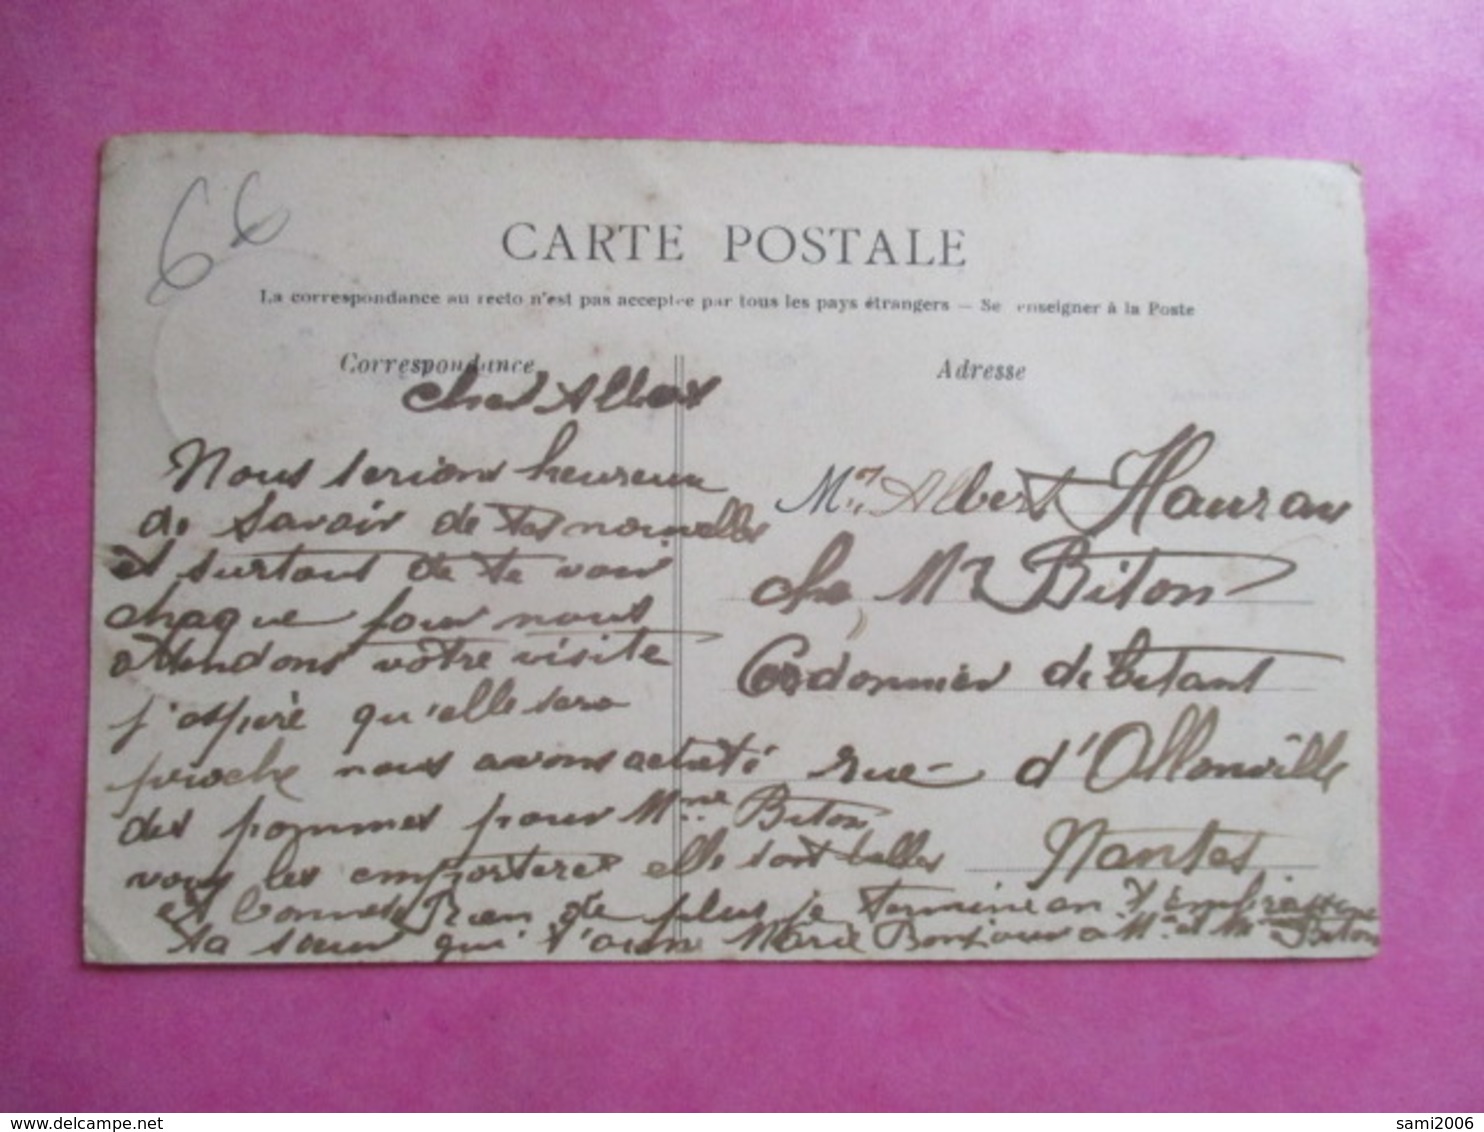 66
CARTE POSTALE
La correspondance au recto n'est pas acceptée par tous les pays étrangers — Se renseigner à la Poste
Correspondance
Adresse
cher Albert
Nous serions heureux
de savoir de tes nouvelles
et surtout de te voir
chaque jour nous
attendons votre visite
j'espère qu'elle sera
proche nous avons acheté
des pommes pour Mme Biton
vous les emporterez elle sont belles
et bonnes Rien de plus je termine en t'embrassant
ta sœur qui t'aime Marie Bonjour a Mr et Mme Biton
Mr Albert Hauray
che Mr Biton
Cordonnier débitant
rue d'Allonville
Nantes
sami2006